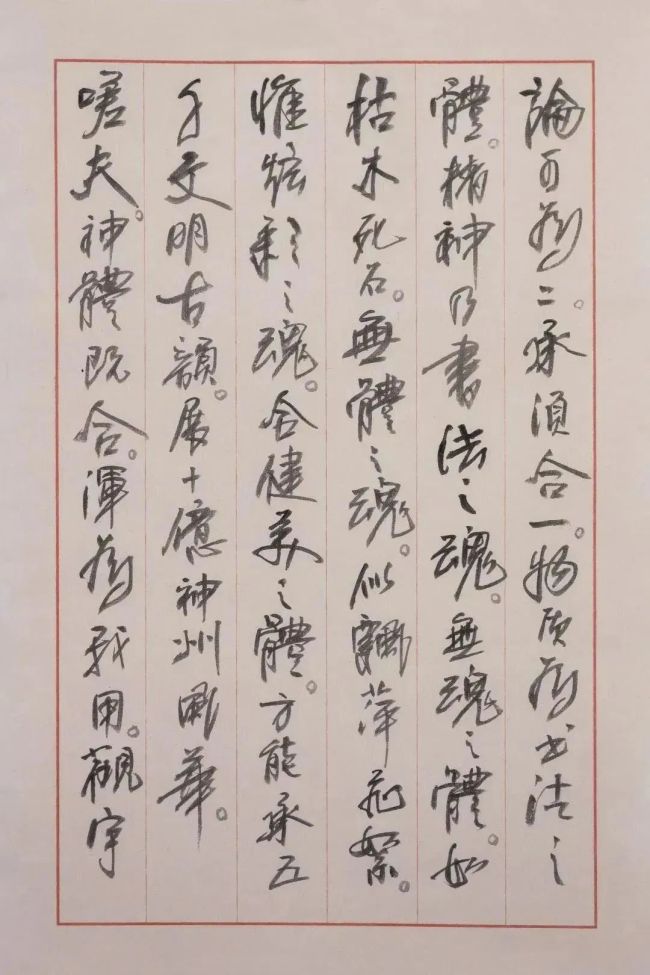 論可為二。承須合一。物质為书法之
體。精神乃書法之魂。無魂之體。如
枯木死石。無體之魂。似飘萍飛絮。
惟炫彩之魂。合健美之體。方能承五
千文明古韻。展十億神州風華。
嗟夫。神體既合。渾為我用。觀宇